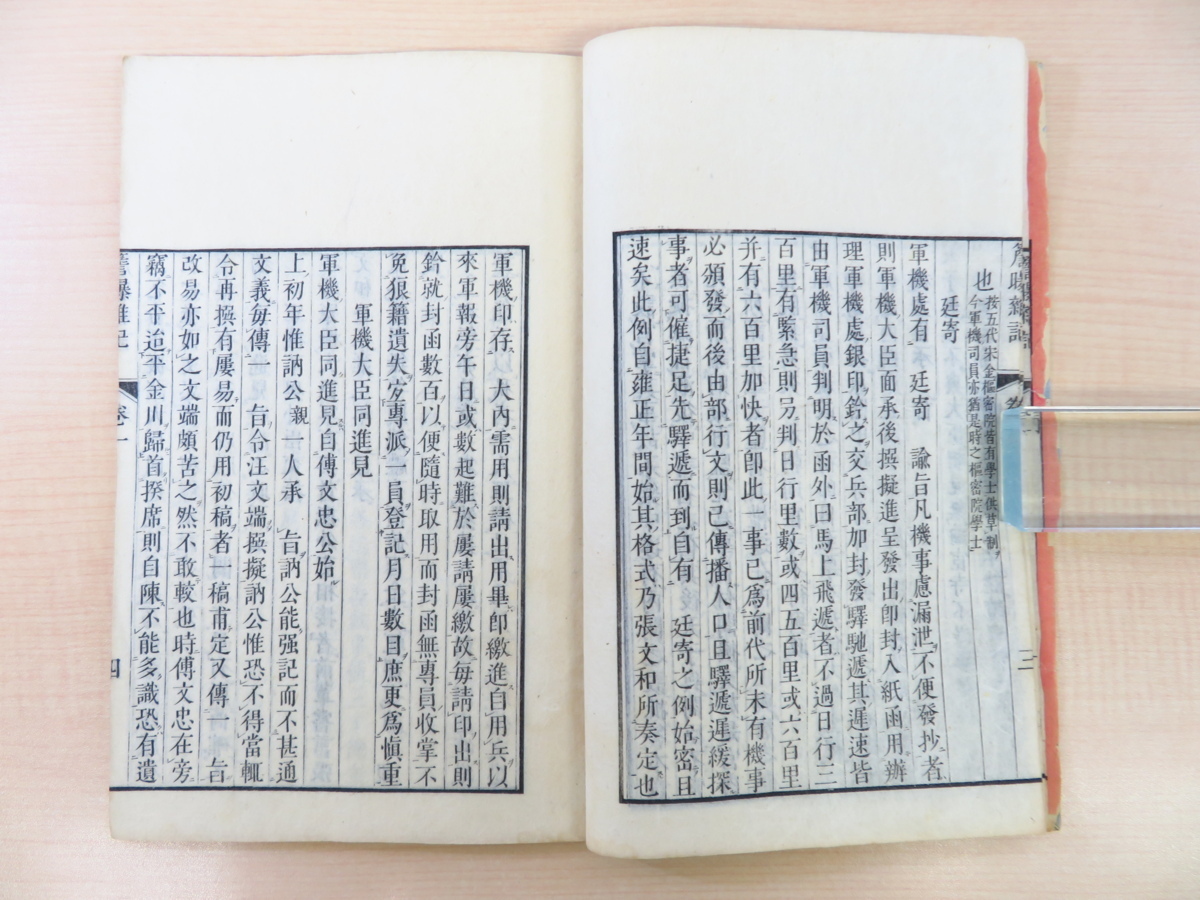 簷曝雜記
也按五代宋金樞密院皆有學士供草制
今軍機司員亦猶是時之樞密院學士
廷寄
軍機處有 廷寄 諭旨凡機事慮漏泄不便發抄者
則軍機大臣面承後撰擬進呈發出卽封入紙函用辦
理軍機處銀印鈐之交兵部加封發驛馳遞其遲速皆
由軍機司員判明於函外曰馬上飛遞者不過日行三
百里有緊急則另判日行里數或四五百里或六百里
并有六百里加快者卽此一事已爲前代所未有機事
必頒發而後由部行文則已傳播人口且驛遞遲緩探
事者可僱捷足先驛遞而到自有 廷寄之例始密且
速矣此例自雍正年間始其格式乃張文和所奏定也
軍機印存 大內需用則請出用畢卽繳進自用兵以
來軍報旁午日或數起難於屢請屢繳故每請印出則
鈐就封函數百以便隨時取用而封函無專員收掌不
免狼籍遺失宐專派一員登記月日數目庶更爲愼重
軍機大臣同進見
軍機大臣同進見自傅文忠公始
上初年惟訥公親一人承 旨訥公能强記而不甚通
文義每傳一 旨令汪文端撰擬訥公惟恐不得當輒
令再撰有屢易而仍用初稿者一稿甫定又傳一 旨
改易亦如之文端頗苦之然不敢較也時傅文忠在旁
竊不平迨平金川歸首揆席則自陳不能多識恐有遺
簷曝雜記
卷一
四